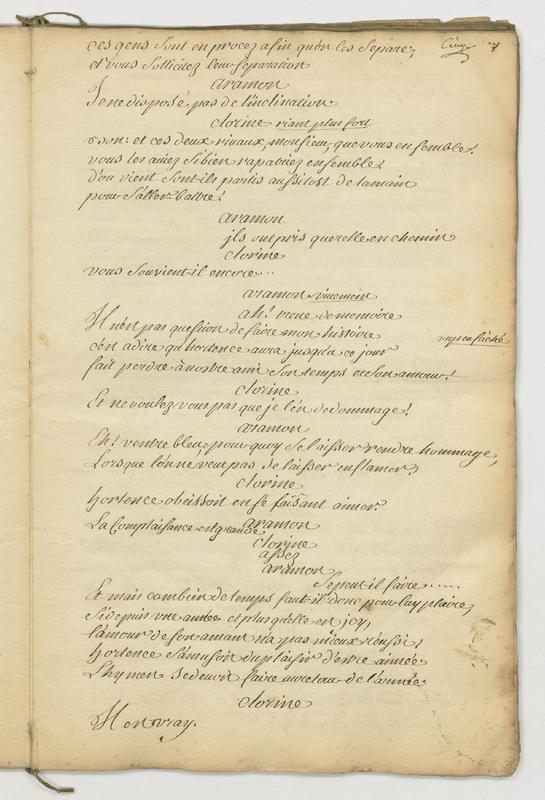 7
ces gens sont en procez afin qu'on les separe,
et vous sollicitez leur separation
aramon
Je ne dispose pas de l'inclination
clorine riant plus fort
bon: et ces deux rivaux, monsieur, que vous en semble!
vous les aviez si bien rapatriez ensemble.
d'ou vient sont-ils partis aussitost de la main
pour s'aller battre!
aramon
jls ont pris querelle en chemin
clorine
vous souvient-il encore...
aramon vivement
ah! treve de memoire
Il n'est pas question de faire mon histoire
un peu fâché
c'est a dire qu'hortence aura jusqu'a ce jour
fait perdre à nostre ami son temps et son amour!
clorine
Et ne voulez vous pas que je l'en dedommage!
aramon
Eh! ventre bleu, pour quoy se laisser rendre hommage,
Lorsque l'on ne veut pas se laisser enflamer,
clorine
hortence obeissoit en se faisant aimer.
aramon
La Complaisance est grande
clorine
assez
aramon
Se peut-il faire.....
Et mais combien de temps faut-il donc pour luy plaire,
si depuis une année et plus qu'elle en jcy,
l'amour de son amant n'a pas mieux réussi,
hortence s'amusoit du plaisir d'estre aimée
L'hymen se devoit faire au retour de l'armée
clorine
Il est vray.